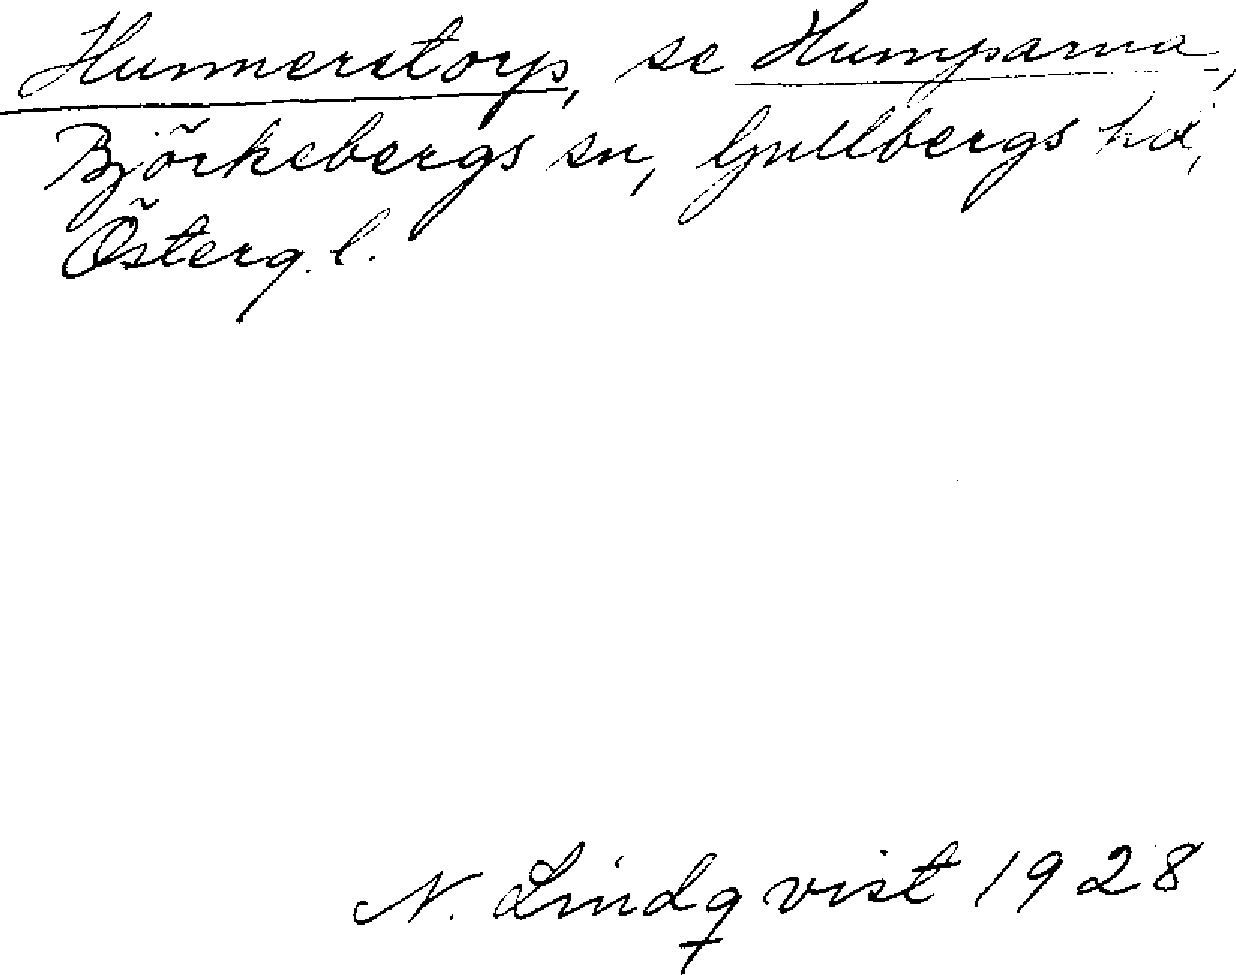 Hunnerstorp, se Humparna,
Björkebergs sn, Gullbergs hd,
Österg. l.
N. Lindqvist 1928